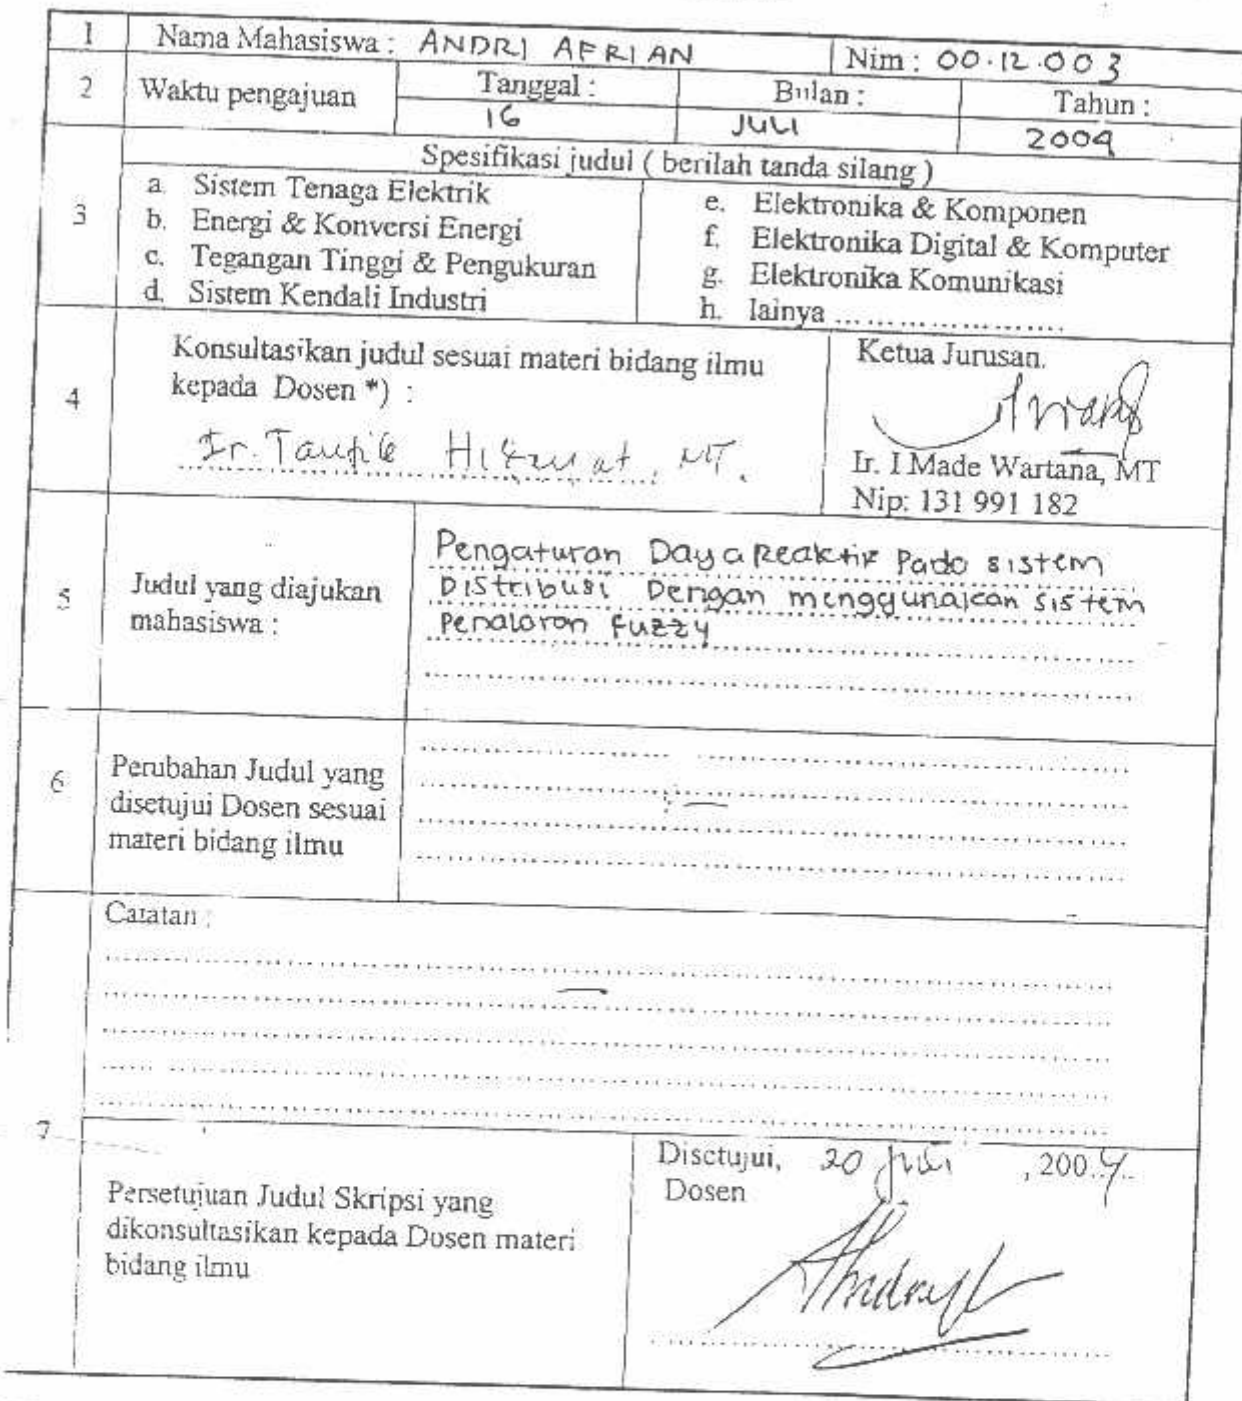 1 Nama Mahasiswa : ANDRI AFRIAN Nim : 00.12.003
2 Waktu pengajuan Tanggal : Bulan : Tahun :
16 JULI 2004
3 Spesifikasi judul ( berilah tanda silang )
a. Sistem Tenaga Elektrik
b. Energi & Konversi Energi
c. Tegangan Tinggi & Pengukuran
d. Sistem Kendali Industri
e. Elektronika & Komponen
f. Elektronika Digital & Komputer
g. Elektronika Komunikasi
h. lainya ........................
4 Konsultasikan judul sesuai materi bidang ilmu
kepada Dosen *) :
Ir. Taufik Hikmat, MT.
Ketua Jurusan.
Ir. I Made Wartana, MT
Nip: 131 991 182
5 Judul yang diajukan
mahasiswa :
Pengaturan Daya Reaktif Pada sistem
Distribusi Dengan menggunakan sistem
Penalaran fuzzy
6 Perubahan Judul yang
disetujui Dosen sesuai
materi bidang ilmu
-
Catatan :
-
7 Persetujuan Judul Skripsi yang
dikonsultasikan kepada Dosen materi
bidang ilmu
Disetujui, 20 Juli , 2004
Dosen